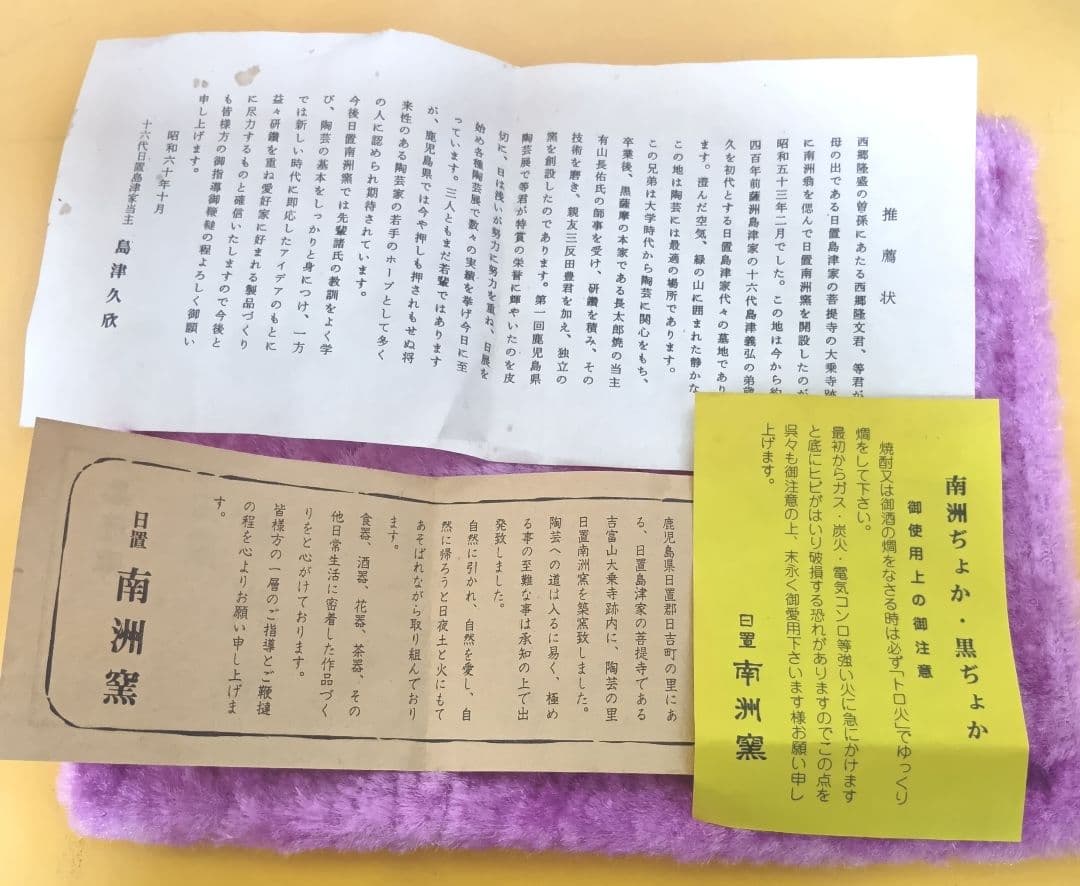 推薦状
西郷隆盛の曽孫にあたる西郷隆文君、等君が
母の出である日置島津家の菩提寺の大乗寺跡
に南洲翁を偲んで日置南洲窯を開設したのが
昭和五十三年二月でした。この地は今から約
四百年前薩洲島津家の十六代島津義弘の弟歳
久を初代とする日置島津家代々の墓地であり
ます。澄んだ空気、緑の山に囲まれた静かな
この地は陶芸には最適の場所であります。
この兄弟は大学時代から陶芸に関心をもち、
卒業後、黒薩摩の本家である長太郎焼の当主
有山長佑氏の師事を受け、研鑽を積み、その
技術を磨き、親友三反田豊君を加え、独立の
窯を創設したのであります。第一回鹿児島県
陶芸展で等君が特賞の栄誉に輝やいたのを皮
切に、日は浅いが努力に努力を重ね、日展を
始め各種陶芸展で数々の実績を挙げ今日に至
っています。三人ともまだ若輩ではあります
が、鹿児島県では今や押しも押されもせぬ将
来性のある陶芸家の若手のホープとして多く
の人に認められ期待されています。
今後日置南洲窯では先輩諸氏の教訓をよく学
び、陶芸の基本をしっかりと身につけ、一方
では新しい時代に即応したアイデアのもとに
益々研鑽を重ね愛好家に好まれる製品づくり
に尽力するものと確信いたしますので今後と
も皆様方の御指導御鞭撻の程よろしく御願い
申し上げます。
昭和六十年十月
十六代日置島津家当主 島津久欣
鹿児島県日置郡日吉町の里にあ
る、日置島津家の菩提寺である
吉富山大乗寺跡内に、陶芸の里
日置南洲窯を築窯致しました。
陶芸への道は入るに易く、極め
る事の至難な事は承知の上で出
発致しました。
自然に引かれ、自然を愛し、自
然に帰ろうと日夜土と火にもて
あそばれながら取り組んでおり
ます。
食器、酒器、花器、茶器、その
他日常生活に密着した作品づく
りをと心がけております。
皆様方の一層のご指導とご鞭撻
の程を心よりお願い申し上げま
す。
日置 南洲窯
南洲ぢょか・黒ぢょか
御使用上の御注意
焼酎又は御酒の燗をなさる時は必ず「トロ火」でゆっくり
燗をして下さい。
最初からガス・炭火・電気コンロ等強い火に急にかけます
と底にヒビがはいり破損する恐れがありますのでこの点を
呉々も御注意の上、末永く御愛用下さいます様お願い申し
上げます。
日置 南洲窯